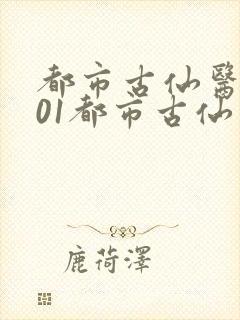 都市古仙醫
01都市古仙
鹿荷澤